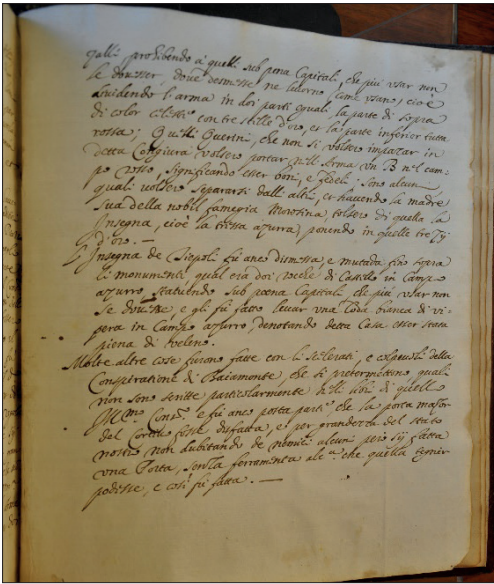 galli prohibendo à quelli sub pena Capital, che più usar non
se dovesser, dove
dividendo l'arma in doi parti equal, la parte di sopra
di color celeste con tre stelle d'oro, et la parte inferior tutta
rossa; Quelli Querini, che non si volser impazar in
detta Congiura volsero portar nell'Arma un B nel cam-
po rosso, significando esser boni, e fedeli; sono alcuni
quali volsero separarsi dall'altri, et havendo la madre
sua della nobil fameglia Morosina, tolsero di quella la
Insegna, cioè la azurra, ponendo in quelle tre
d'oro. —
L'Insegna de Tiepoli fù anco dismessa, e mutada fino sopra
li monumenti qual era doi di Castello in Campo
azurro, statuendo sub poena Capital che più usar non
se dovesse, e gli fù fatto levar una Coda bianca di vi-
pera in Campo azurro, denotando detta Casa esser stata
piena di veleno.
Molte altre cose furono fatte con li scelerati, e colpevoli della
Conspiratione di Baiamonte, che si pretermetteno quali
non sono scritte particolarmente nelli libri di quell'
e fù anco posta parte, che la porta mazor
del Cortivo fosse disfatta, e per grandezza del stato
nostro non dubitando de nemici alcuni però sij fatta
una Porta, senza ferramenta che quella tegnir
podesse, e così fù fatta. —